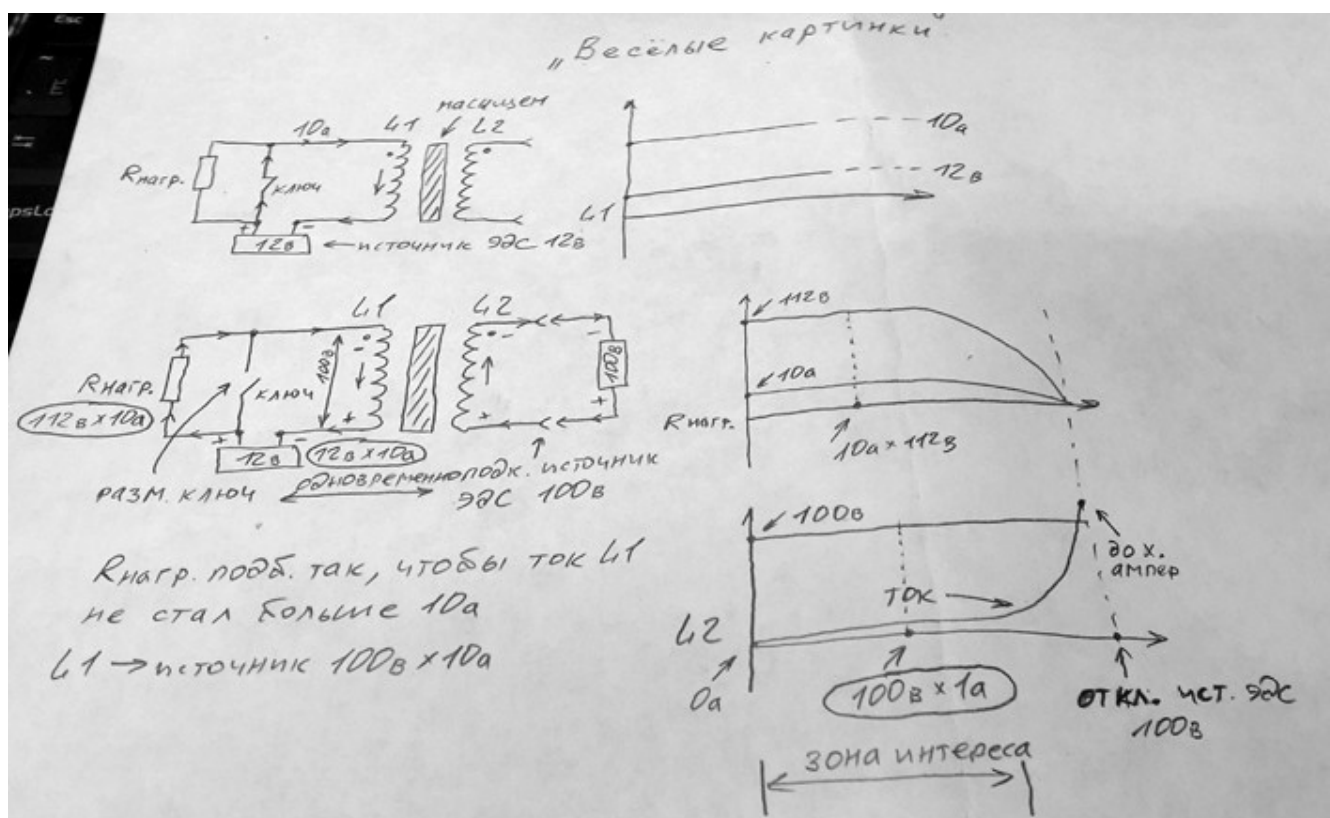 Esc
E
psLo
„Весёлые картинки"
насыщен
10а L1 L2
Rнагр.
ключ
+ -
12в ← источник ЭДС 12в
10а
12в
L1
L1 L2
100в
Rнагр.
ключ
100в
112в х 10а
12в 12в х 10а
разм. ключ одновременно подк. источник
ЭДС 100в
112в
10а
Rнагр.
10а х 112в
Rнагр. подб. так, чтобы ток L1
не стал больше 10а
L1 → источник 100в х 10а
100в
до х.
ампер
ток
L2
0а
100в х 1а
откл. ист. ЭДС
100в
зона интереса